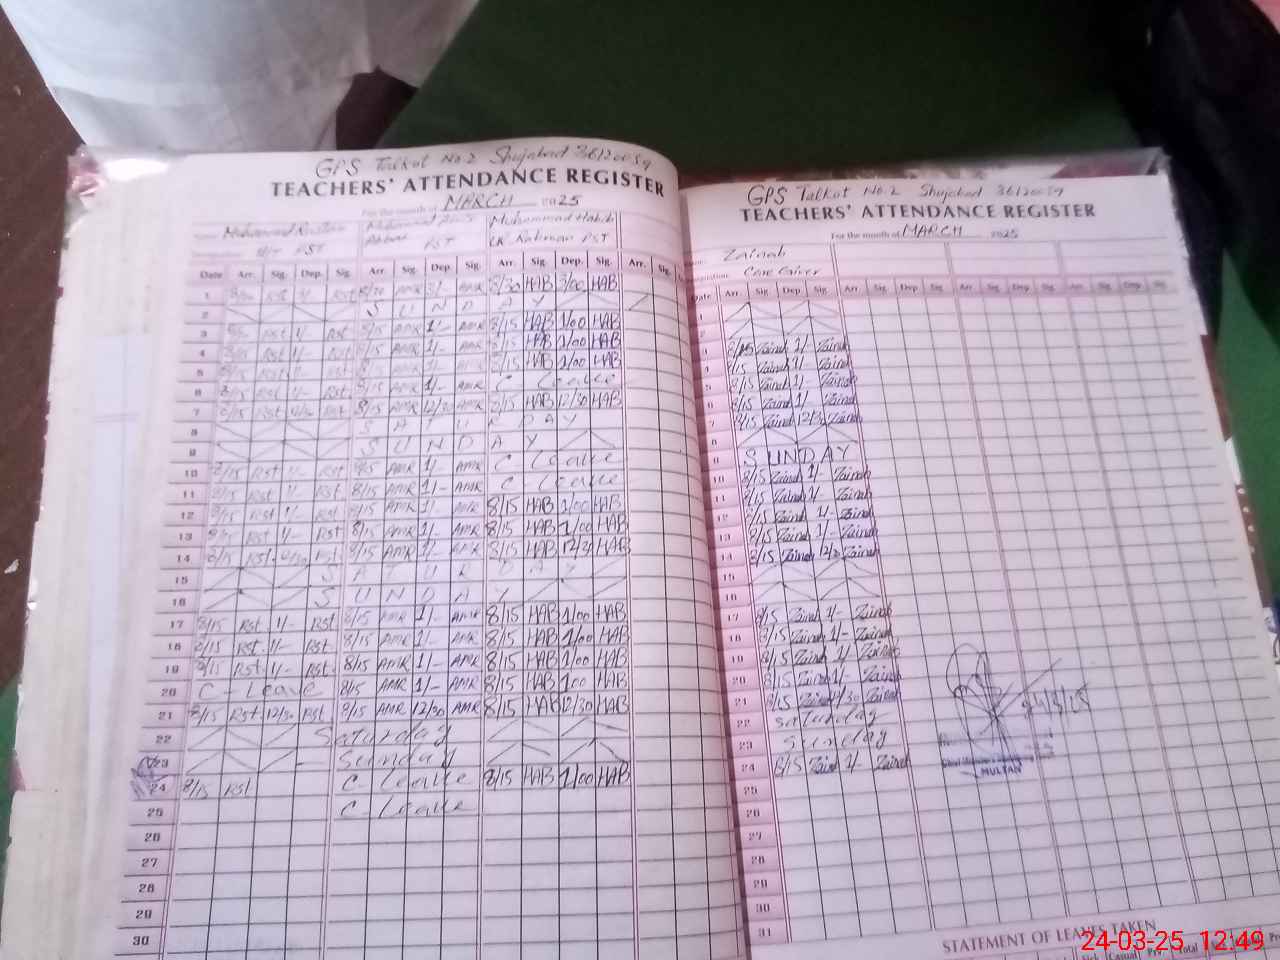 GPS Talkot No. 2 Shujabad 36120059
TEACHERS' ATTENDANCE REGISTER
For the month of MARCH 2025
Name Muhammad Muhammad Muhammad Habib
PST Abbas PST Ur Rahman PST
Date Arr. Sig. Dep. Sig. Arr. Sig. Dep. Sig. Arr. Sig. Dep. Sig. Arr. Sig.
1 Rst 3/- Rst AMR 3/- AMR 8/30 HAB 3/00 HAB
2 S U N D A Y
3 Rst 1/- Rst 8/15 AMR 1/- AMR 8/15 HAB 1/00 HAB
4 8/15 Rst 1/- Rst 8/15 AMR 1/- AMR 8/15 HAB 1/00 HAB
5 8/15 Rst 1/- Rst 8/15 AMR 1/- AMR 8/15 HAB 1/00 HAB
6 8/15 Rst 1/- Rst 8/15 AMR 1/- AMR C Leave
7 8/15 Rst Rst 8/15 AMR 12/30 AMR 8/15 HAB 12/30 HAB
8 S A T U R D A Y
9 S U N D A Y
10 8/15 Rst 1/- Rst AMR 1/- AMR C Leave
11 8/15 Rst 1/- Rst 8/15 AMR 1/- AMR C Leave
12 8/15 Rst 1/- Rst 8/15 AMR 1/- AMR 8/15 HAB 1/00 HAB
13 8/15 Rst 1/- Rst 8/15 AMR 1/- AMR 8/15 HAB 1/00 HAB
14 8/15 Rst 12/30 Rst 8/15 AMR 1/- AMR 8/15 HAB 12/30 HAB
15 S A T U R D A Y
16 S U N D A Y
17 8/15 Rst 1/- Rst 8/15 AMR 1/- AMR 8/15 HAB 1/00 HAB
18 8/15 Rst 1/- Rst 8/15 AMR 1/- AMR 8/15 HAB 1/00 HAB
19 8/15 Rst 1/- Rst 8/15 AMR 1/- AMR 8/15 HAB 1/00 HAB
20 C - Leave 8/15 AMR 1/- AMR 8/15 HAB 1/00 HAB
21 8/15 Rst 12/30 Rst 8/15 AMR 12/30 AMR 8/15 HAB 12/30 HAB
22 Saturday
23 Sunday
24 8/15 Rst C-Leave 8/15 HAB 1/00 HAB
25 C-Leave
26
27
28
29
30
GPS Talkot No. 2 Shujabad 36120059
TEACHERS' ATTENDANCE REGISTER
For the month of MARCH 2025
Zainab
Care Giver
Date Arr. Sig. Dep. Sig. Arr. Sig. Dep Sig. Arr. Sig. Dep. Sig. Arr. Sig. Dep. Sig.
1
2
3 8/15 Zainab 1/- Zainab
4 8/15 Zainab 1/- Zainab
5 8/15 Zainab 1/- Zainab
6 8/15 Zainab 1/- Zainab
7 8/15 Zainab 12/30 Zainab
8
9 S U N D A Y
10 8/15 Zainab 1/- Zainab
11 8/15 Zainab 1/- Zainab
12 8/15 Zainab 1/- Zainab
13 8/15 Zainab 1/- Zainab
14 8/15 Zainab Zainab
15
16
17 8/15 Zainab 1/- Zainab
18 8/15 Zainab 1/- Zainab
19 8/15 Zainab 1/- Zainab
20 8/15 Zainab 1/- Zainab
21 8/15 Zainab Zainab
22 Saturday
23 Sunday
24 8/15 Zainab 1/- Zainab
25
26
27
28
29
30
31
24/3/25
MULTAN
STATEMENT OF LEAVES TAKEN
Sick Casual Prv. Total
24-03-25 12:49